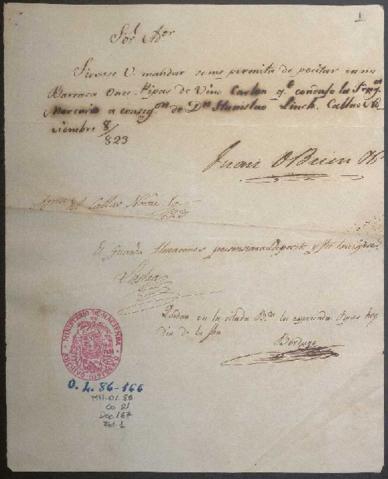 1
Sor. Ador
Sirvase U. mandar se me permita depositar en mi
Barraca Once Pipas de Vino Carlon qe condujo la Fragta
Mercurio a consigon de Dn Stanislao Linch. Callao No
viembre 8/
823
Juan OBrien
Callao Nove 10
823
El Guarda Almacenes presenciara el deposito y
Quedan en la citada Bca las expresadas Pipas hoy
dia de la fha
MINISTERIO DE HACIENDA
O. L. 86-166
MH-OL 86
Ca 21
Doc 167
Fol. 1